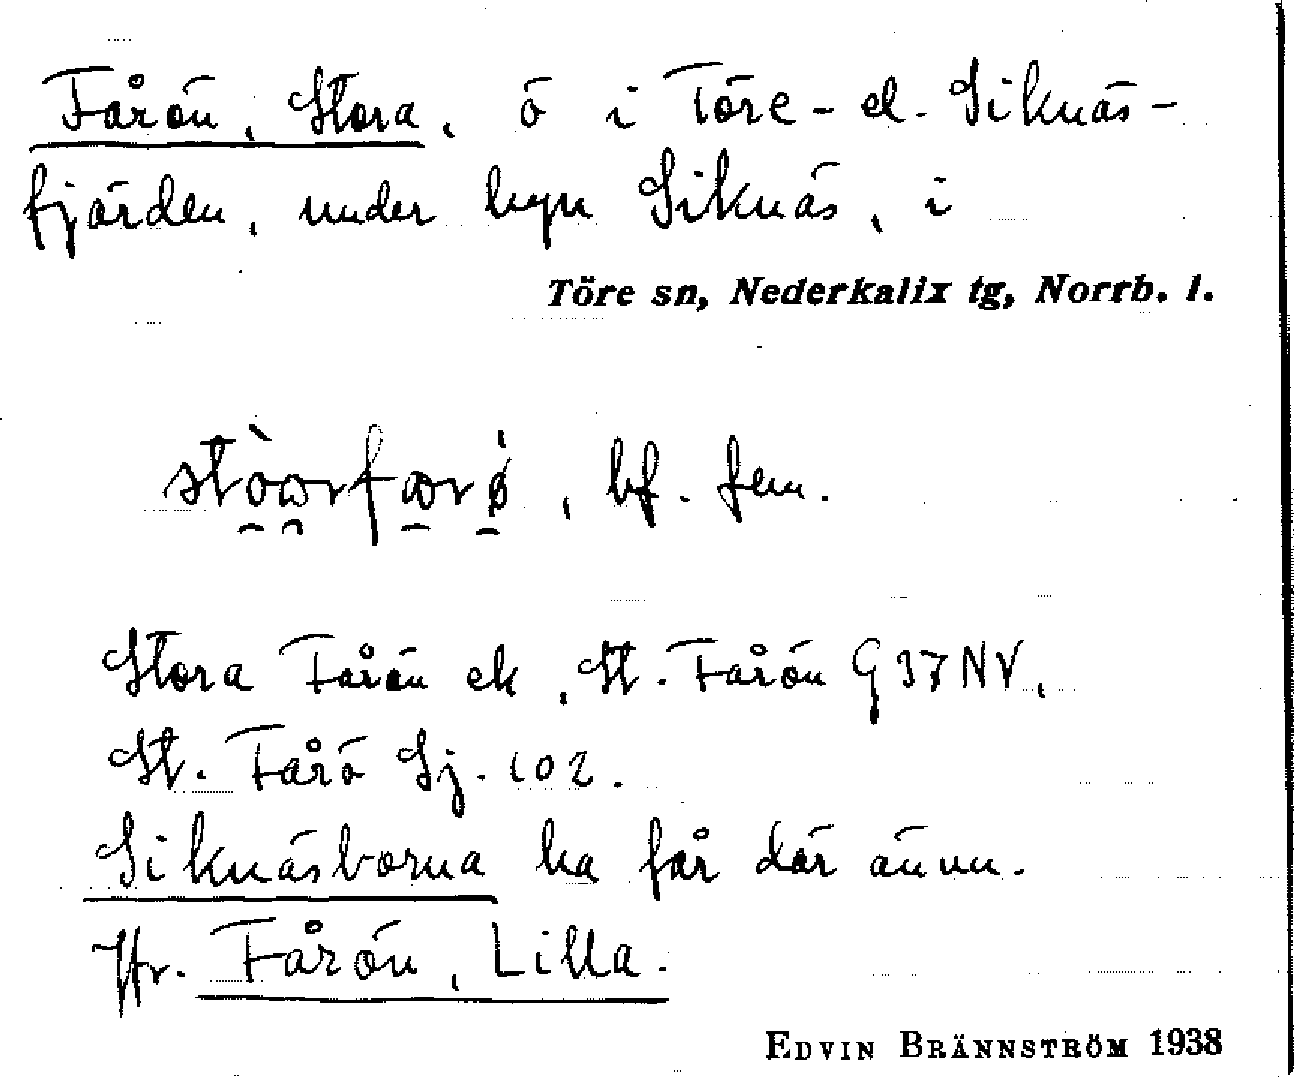 Fårön, Stora, ö i Töre- el. Siknäs-
fjärden, under byn Siknäs, i
Töre sn, Nederkalix tg, Norrb. l.
, bf. fem.
Stora Fårön ek, St. Fårön G 37 NV,
St. Fårö Sj. 102.
Siknäsborna ha får där ännu.
Jfr. Fårön, Lilla.
EDVIN BRÄNNSTRÖM 1938